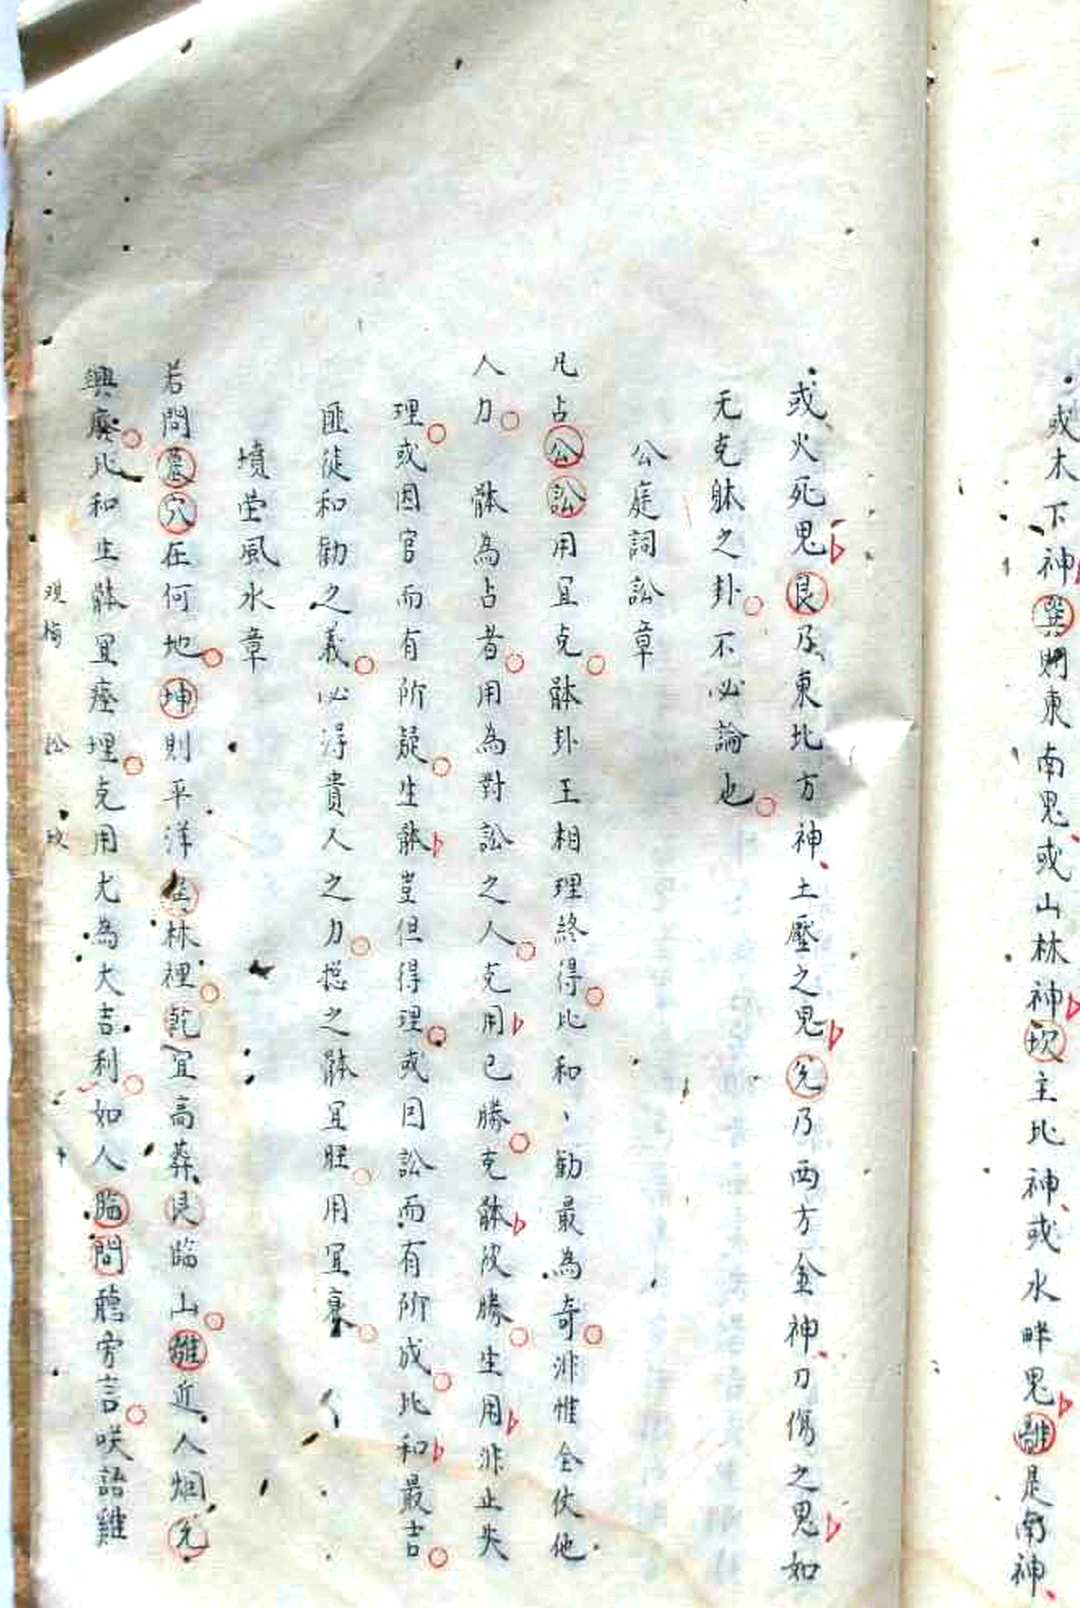 或木下神巽則東南鬼或山林神坎主北神或水畔鬼離是南神
或火死鬼艮乃東北方神土壓之鬼兌乃西方金神刀傷之鬼如
无克躰之卦不必論也
公庭詞訟章
凡占公訟用宜克骵卦王相理終得比和、勸最為奇非惟全仗他
人力 骵為占者用為對訟之人克用己勝克骵彼勝生用非止失
理或因官而有阶疑生骵豈但得理或因訟而有阶成比和最吉
匪徒和勸之義必得貴人之力揔之骵宜旺用宜衰
墳塋風水章
若問墓穴在何地坤則平洋林裡乾宜高葬艮臨山離近人烟兌
興廢比和生骵宜瘞埋克用尤為大吉利如人臨問聽旁言咲詒雞
观梅 訟 玟